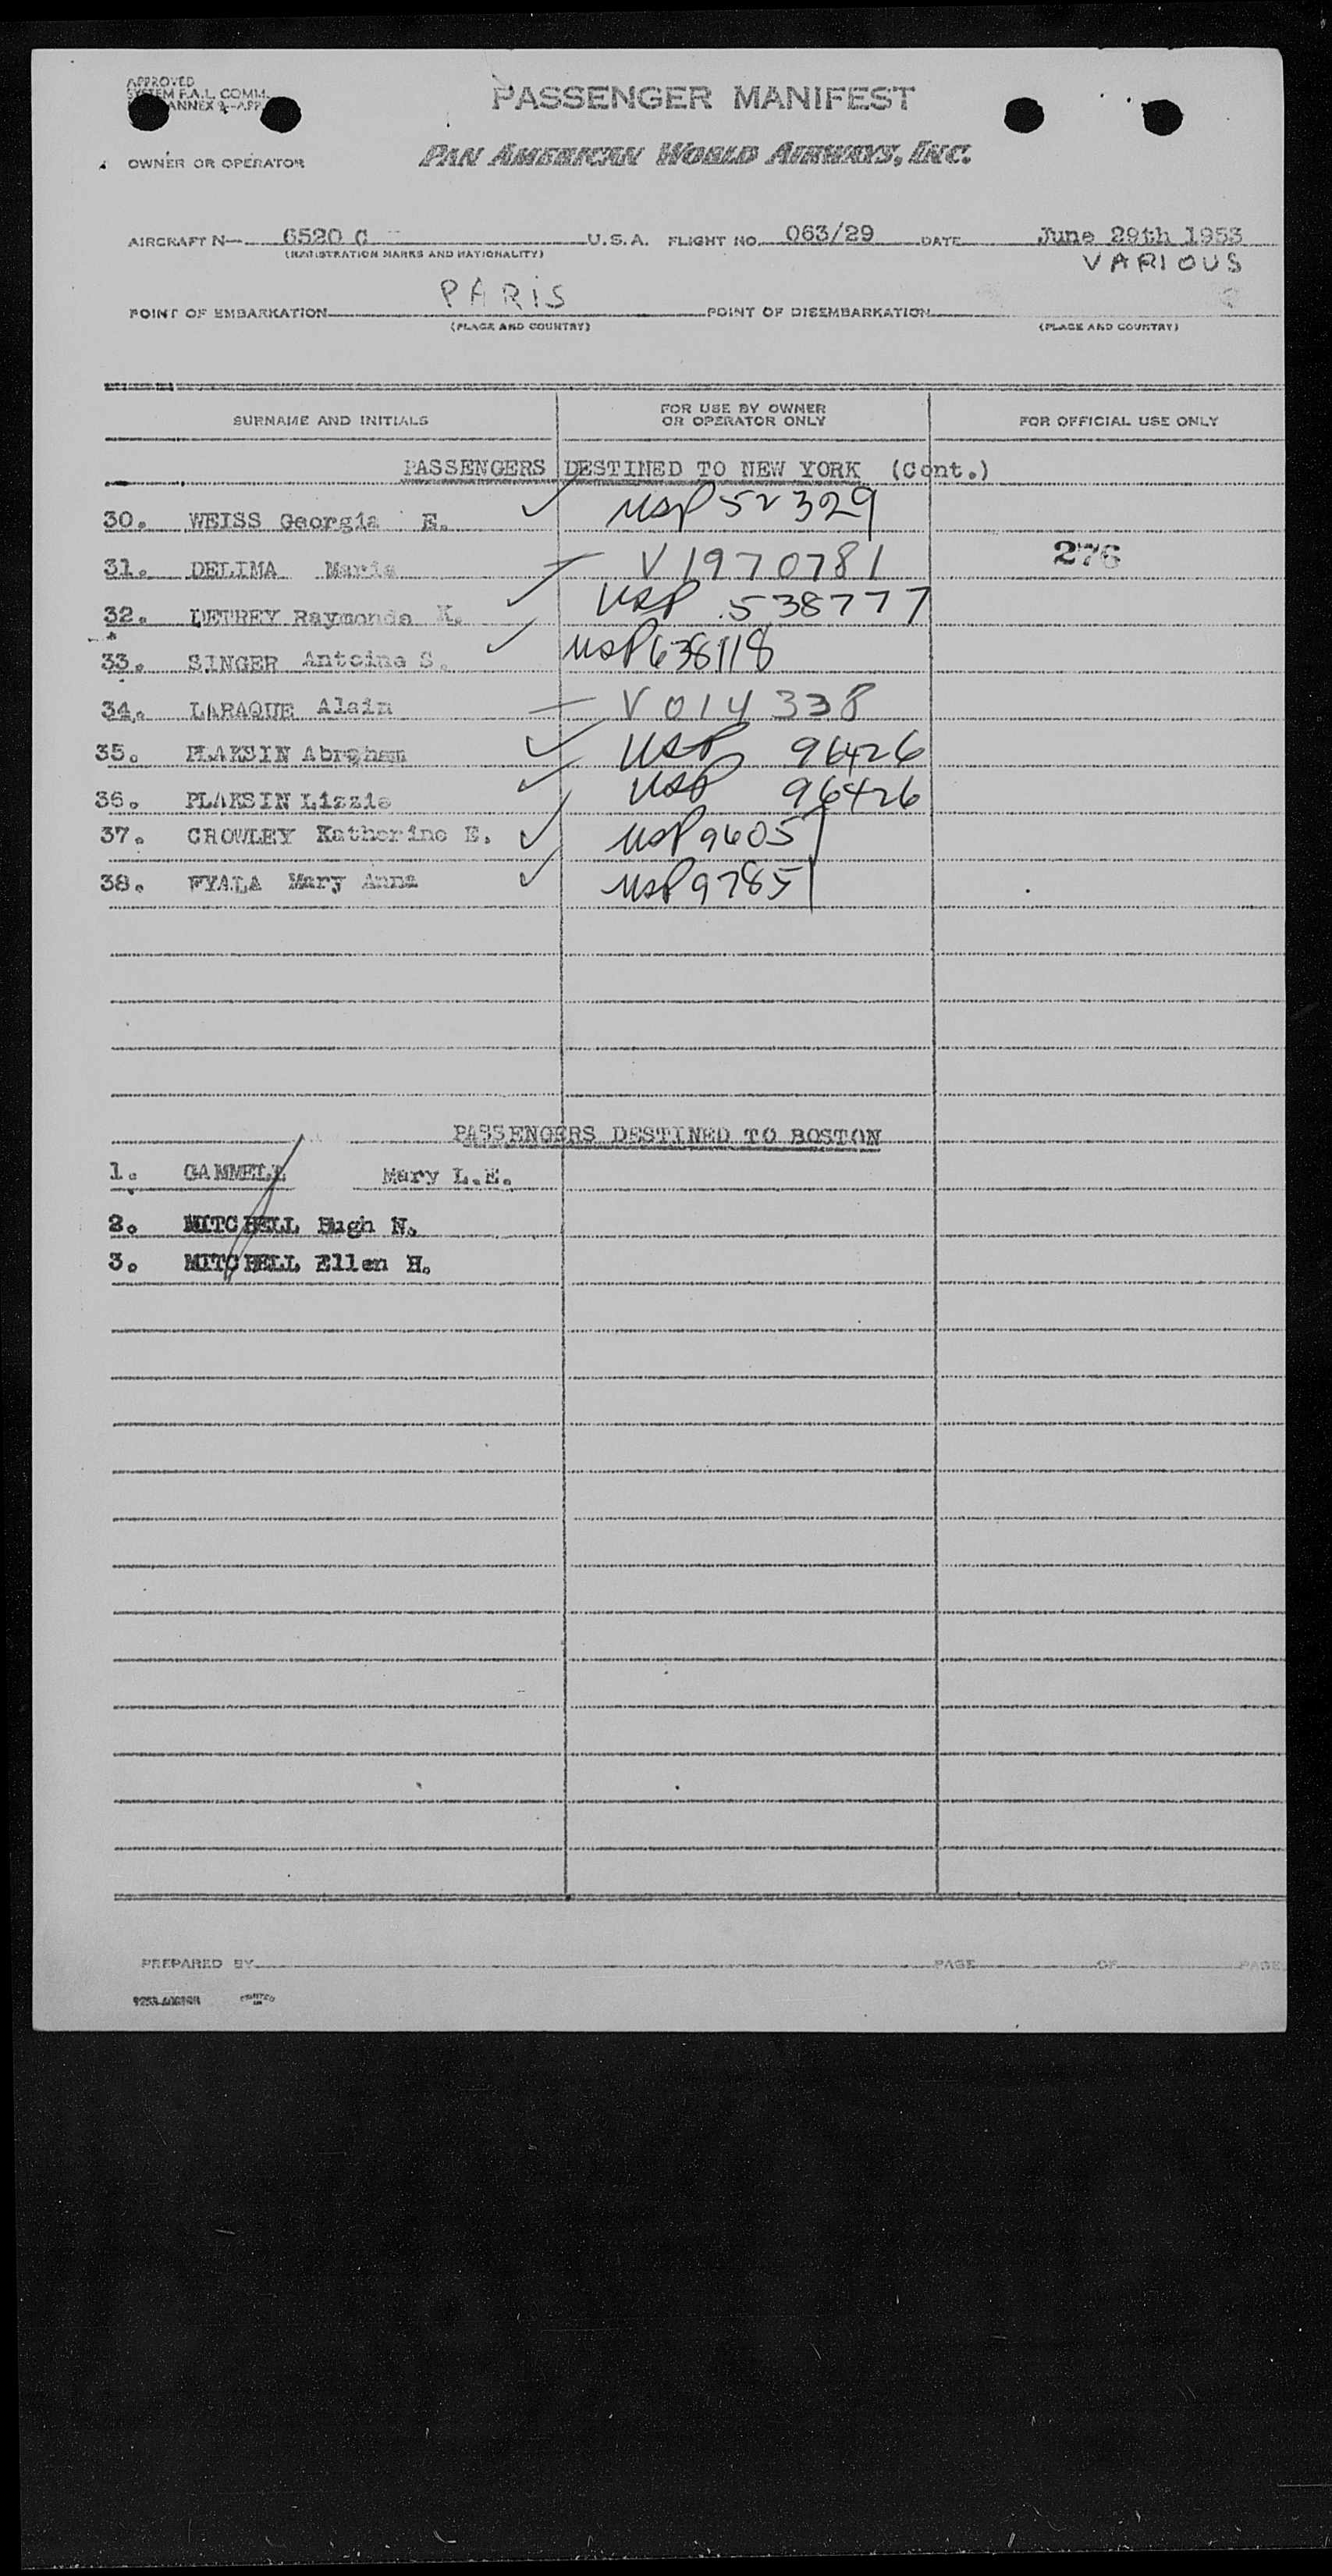 APPROVED
SYSTEM F.A.L. COMM.
ANNEX 9-APP.
PASSENGER MANIFEST
OWNER OR OPERATOR
PAN AMERICAN WORLD AIRWAYS, INC.
AIRCRAFT N— 6520 C U.S.A. FLIGHT NO. 063/29 DATE June 29th 1953
(REGISTRATION MARKS AND NATIONALITY)
VARIOUS
POINT OF EMBARKATION PARIS POINT OF DISEMBARKATION
(PLACE AND COUNTRY) (PLACE AND COUNTRY)
SURNAME AND INITIALS FOR USE BY OWNER OR OPERATOR ONLY FOR OFFICIAL USE ONLY
PASSENGERS DESTINED TO NEW YORK (Cont.)
30. WEISS Georgia E. ✓ USP 52329
31. DELIMA Maria — V 1970781 276
32. DETREY Raymonde K. ✓ USP 538777
33. SINGER Antoine S. ✓ USP 638118
34. LARAQUE Alain — V 014338
35. PLAKSIN Abraham ✓ USP 96426
36. PLAKSIN Lizzie ✓ USP 96426
37. CROWLEY Katherine E. ✓ USP 96051
38. FYALA Mary Anna ✓ USP 97851
PASSENGERS DESTINED TO BOSTON
1. GAMMELL Mary L.E.
2. MITCHELL Hugh N.
3. MITCHELL Ellen H.
PREPARED BY PAGE OF PAGE
PRINTED